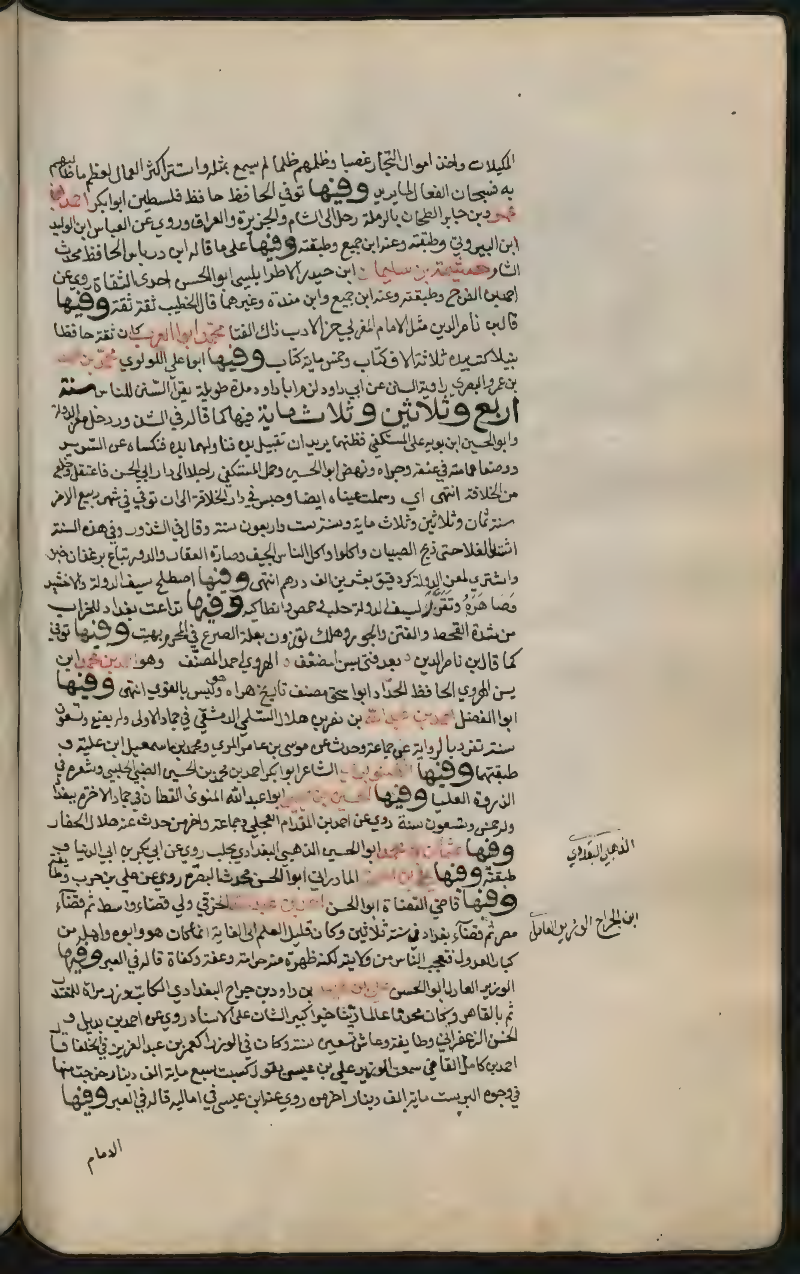 المكيلات واخذ اموال التجار غصبا وظلمهم ظلما لم يسمع بمثله واستتر اكثر العمال لعظم ما
به فسبحان الفعال لما يريد وفيها توفي الحافظ حافظ فلسطين ابوا بكر احمد بن
بن جابر الطحان بالرملة رحل الى الشام والجزيرة والعراق وروي عن العباس ابن الوليد
ابن البيروتي وطبقته وعنه ابن جميع وطبقته وفيها على ما قاله ابن درباس الحافظ محدث
الشام خيثمة بن سليمان ابن حيدر الاطرابلسي ابو الحسن احدى الثقاة روي عن
احمد بن الفرج وطبقته وعنه ابن جميع وابن مندة وغيرهما قال الخطيب ثقة ثقة وفيها
قال ابن ناصر الدين مثل الامام المغربي حز الادب ذاك الفتا محمد ابوا العرب كان ثقة حافظا
نبيلا كتب بيده ثلاثة الاف كتاب وخمس ماية كتاب وفيها ابوا علي اللولوي محمد بن احمد
بن عمرو البصري راوية السنن عن ابي داود لزم ابا داود مدة طويلة يقرا السنن للناس سنة
اربع وثلاثين وثلاث ماية فيها كما قاله في الشذور دخل معز الدولة
وابو الحسين ابن بويه على المستكفي فظنهما يريدان تقبيل يده فناولهما يده فنكساه عن السرير
ووضعا عمامته في عنقه وجراه ونهض ابو الحسين وحمل المستكفي راجلا الى دار ابي الحسن فاعتقل وخلع
من الخلافة انتهى اي وسملت عيناه ايضا وحبس في دار الخلافة الى ان توفي في شهر ربيع الاخر
سنة ثمان وثلاثين وثلاث ماية وسنه ست واربعون سنة وقال في الشذور وفي هذه السنة
اشتد الغلا حتى ذبح الصبيان واكلوا واكل الناس الجيف وصارة العقار والدور تباع برغفان خبز
واشتري لمعز الدولة كر دقيق بعشرين الف درهم انتهى وفيها اصطلح سيف الدولة والاخشيد
وصاهره وتقرر لسيف الدولة حلب وحمص وانطاكية وفيها تداعت بغداد للخراب
من شدة القحط والفتن والجور وهلك توزون بعلة الصرع في المحرم بهيت وفيها توفي
كما قال ابن ناصر الدين بعد فتى يس المضعف الهروي احمد المصنف وهو احمد بن محمد ابن
يس الهروي الحافظ الحداد ابو اسحق مصنف تاريخ هراه وهو وليس بالقوي انتهى وفيها
ابوا الفضل احمد بن عبد الله بن نصر بن هلال السلمي الدمشقي في جماد الاولى وله بضع وتسعون
سنة تفرد بالرواية عن جماعة وحدث عن موسى بن عامر المري ومحمد بن اسمعيل ابن علية و
طبقتهما وفيها الصنوبري الشاعر ابوا بكر احمد بن محمد بن الحسين الضبي الحلبي وشعره في
الذروة العليا وفيها الحسين بن يحيى ابوا عبد الله المتوي القطان في جماد الاخرة ببغداد
وله خمس وتسعون سنة روي عن احمد بن المقدام العجلي وجماعة واخر من حدث عنه هلال الحفار
وفيها عثمان بن محمد ابوا الحسين الذهبي البغدادي بحلب روي عن ابي بكر بن ابي الدنيا و
طبقته وفيها علي بن اسحق المادراني ابوا الحسن محدث البصرة روي عن علي بن حرب وطايفة
وفيها قاضي القضاة ابوا الحسن احمد بن عبد الله الخرقي ولي قضاء واسط ثم قضاء
مصر ثم قضاء بغداد في سنة ثلاثين وكان قليل العلم الى الغاية انما كان هو وابوه واهله من
كبار العدول فتعجب الناس من ولايته لكنه ظهرة منه حرامة وعفة وكفاة قاله في العبر وفيها
الوزير العادل ابوا الحسن علي ابن عيسى بن داود بن جراح البغدادي الكاتب وزر مراة للمقتدر
ثم بالقاهر وكان محدثا عالما دينا خيرا كبير الشان على الاسناد روي عن احمد بن بديل و
الحسن الزعفراني وطايفة وعاش تسعين سنة وكان في الوزراء كعمر بن عبد العزيز في الخلفا قال
احمد بن كامل القاضي سمعت الوزير علي بن عيسى يقول كسبت سبع ماية الف دينار خرجت منها
في وجوه البر ست ماية الف دينار اخر من روي عنه ابن عيسى في اماليه قاله في العبر وفيها
الذهبي البغدادي
ابن الجراح الوزير العادل
الامام